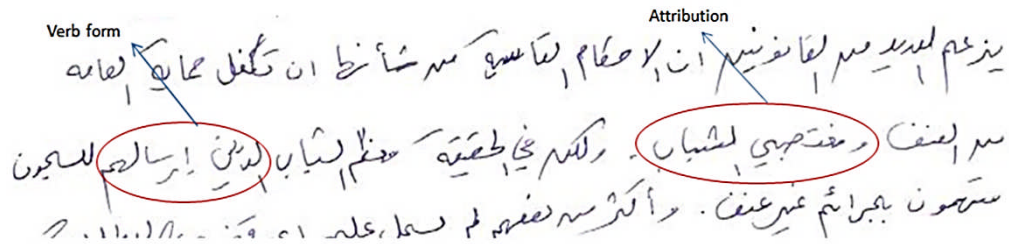 Verb form
Attribution
يزعم العديد من القانونيين ان الاحكام القاسية من شأنها ان تكفل حماية العامه
من العنف ومغتصبي الشباب. ولكن في الحقيقة معظم الشباب الذين إرسالهم للسجون
متهمون بجرائم غير عنف. وأكثر من نصفهم لم